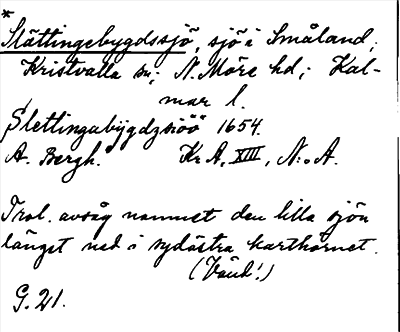 *
Slättingebygdssjö, sjö i Småland;
Kristvalla sn; N. Möre hd; Kal-
mar l.
Slettingabÿgdzsiöö 1654.
A. Bergh. Kr. A, XIII, N:o A.
Trol. avsåg namnet den lilla sjön
längst ned i sydöstra karthörnet.
(Vänd!)
G. 21.